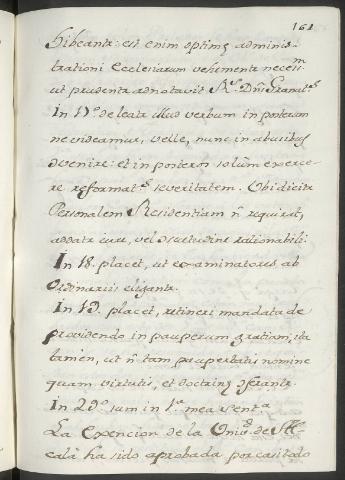 161
hibeantr: est enim optimꝰ adminis-
trationi Ecclesiarum vehementer necess.m
ut prudenter adnotavit R.s Dn̄s Granat.s
In 17.o deleatr illud verbum in posterum
ne videamur, velle, nunc in abusibus
: et in posterum solùm exerce-
re reformat.s severitatem. Ubi dicitr
Personalem Residentiam n̄ requirit,
addatr iure, vel consuetudine rationabili.
In 18. placet, ut examinatores ab
Ordinariis eligantr.
In 19. placet, retineri mandata de
providendo in pauperum gratiam, ita
tamen, ut n̄ tam paupertatis nomine
quam virtutis, et doctrinę
In 29.o sum in 1.a mea sent.a
La Expencion de la Univ.d de Al-
calà ha sido aprobada por casi todo